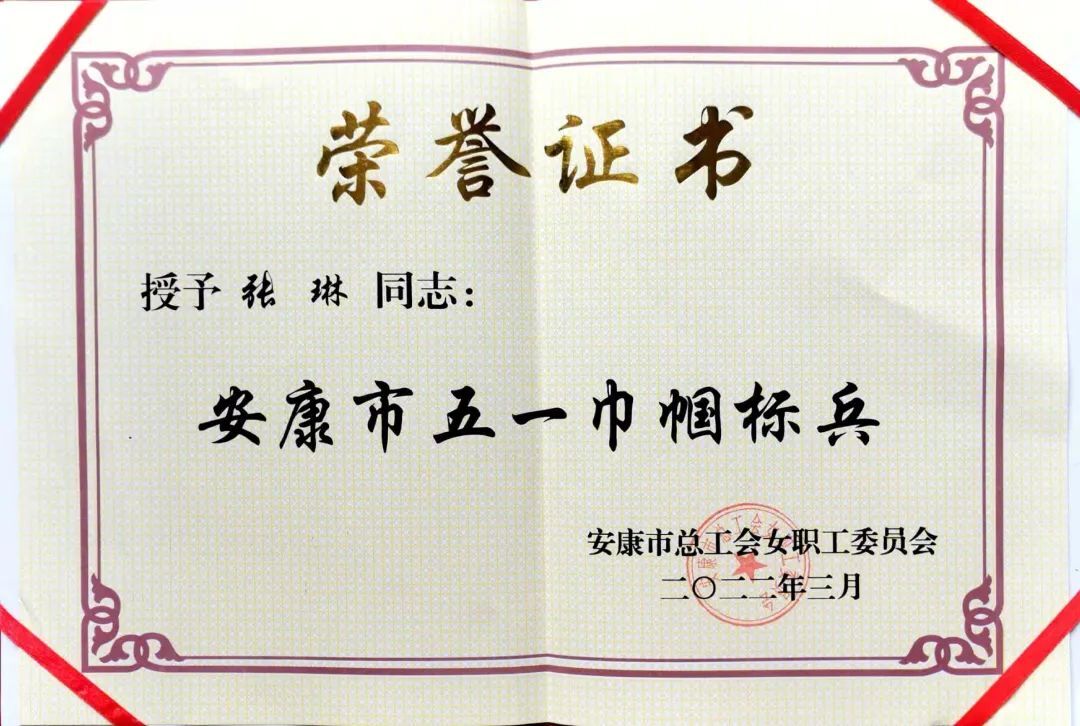 荣誉证书
授予 张 琳 同志：
安康市五一巾帼标兵
安康市总工会女职工委员会
二〇二二年三月